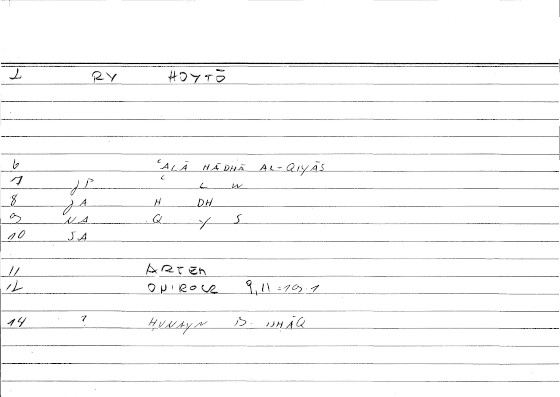 1 RY HOYTŌ
6 ʿALĀ HĀDHĀ AL-QIYĀS
7 JP ʿ L W
8 JA H DH
9 NA Q Y S
10 SA
11 ARTEM
12 ONIROCR 9,11 = 19.1
14 ? HUNAYN B. ISHĀQ